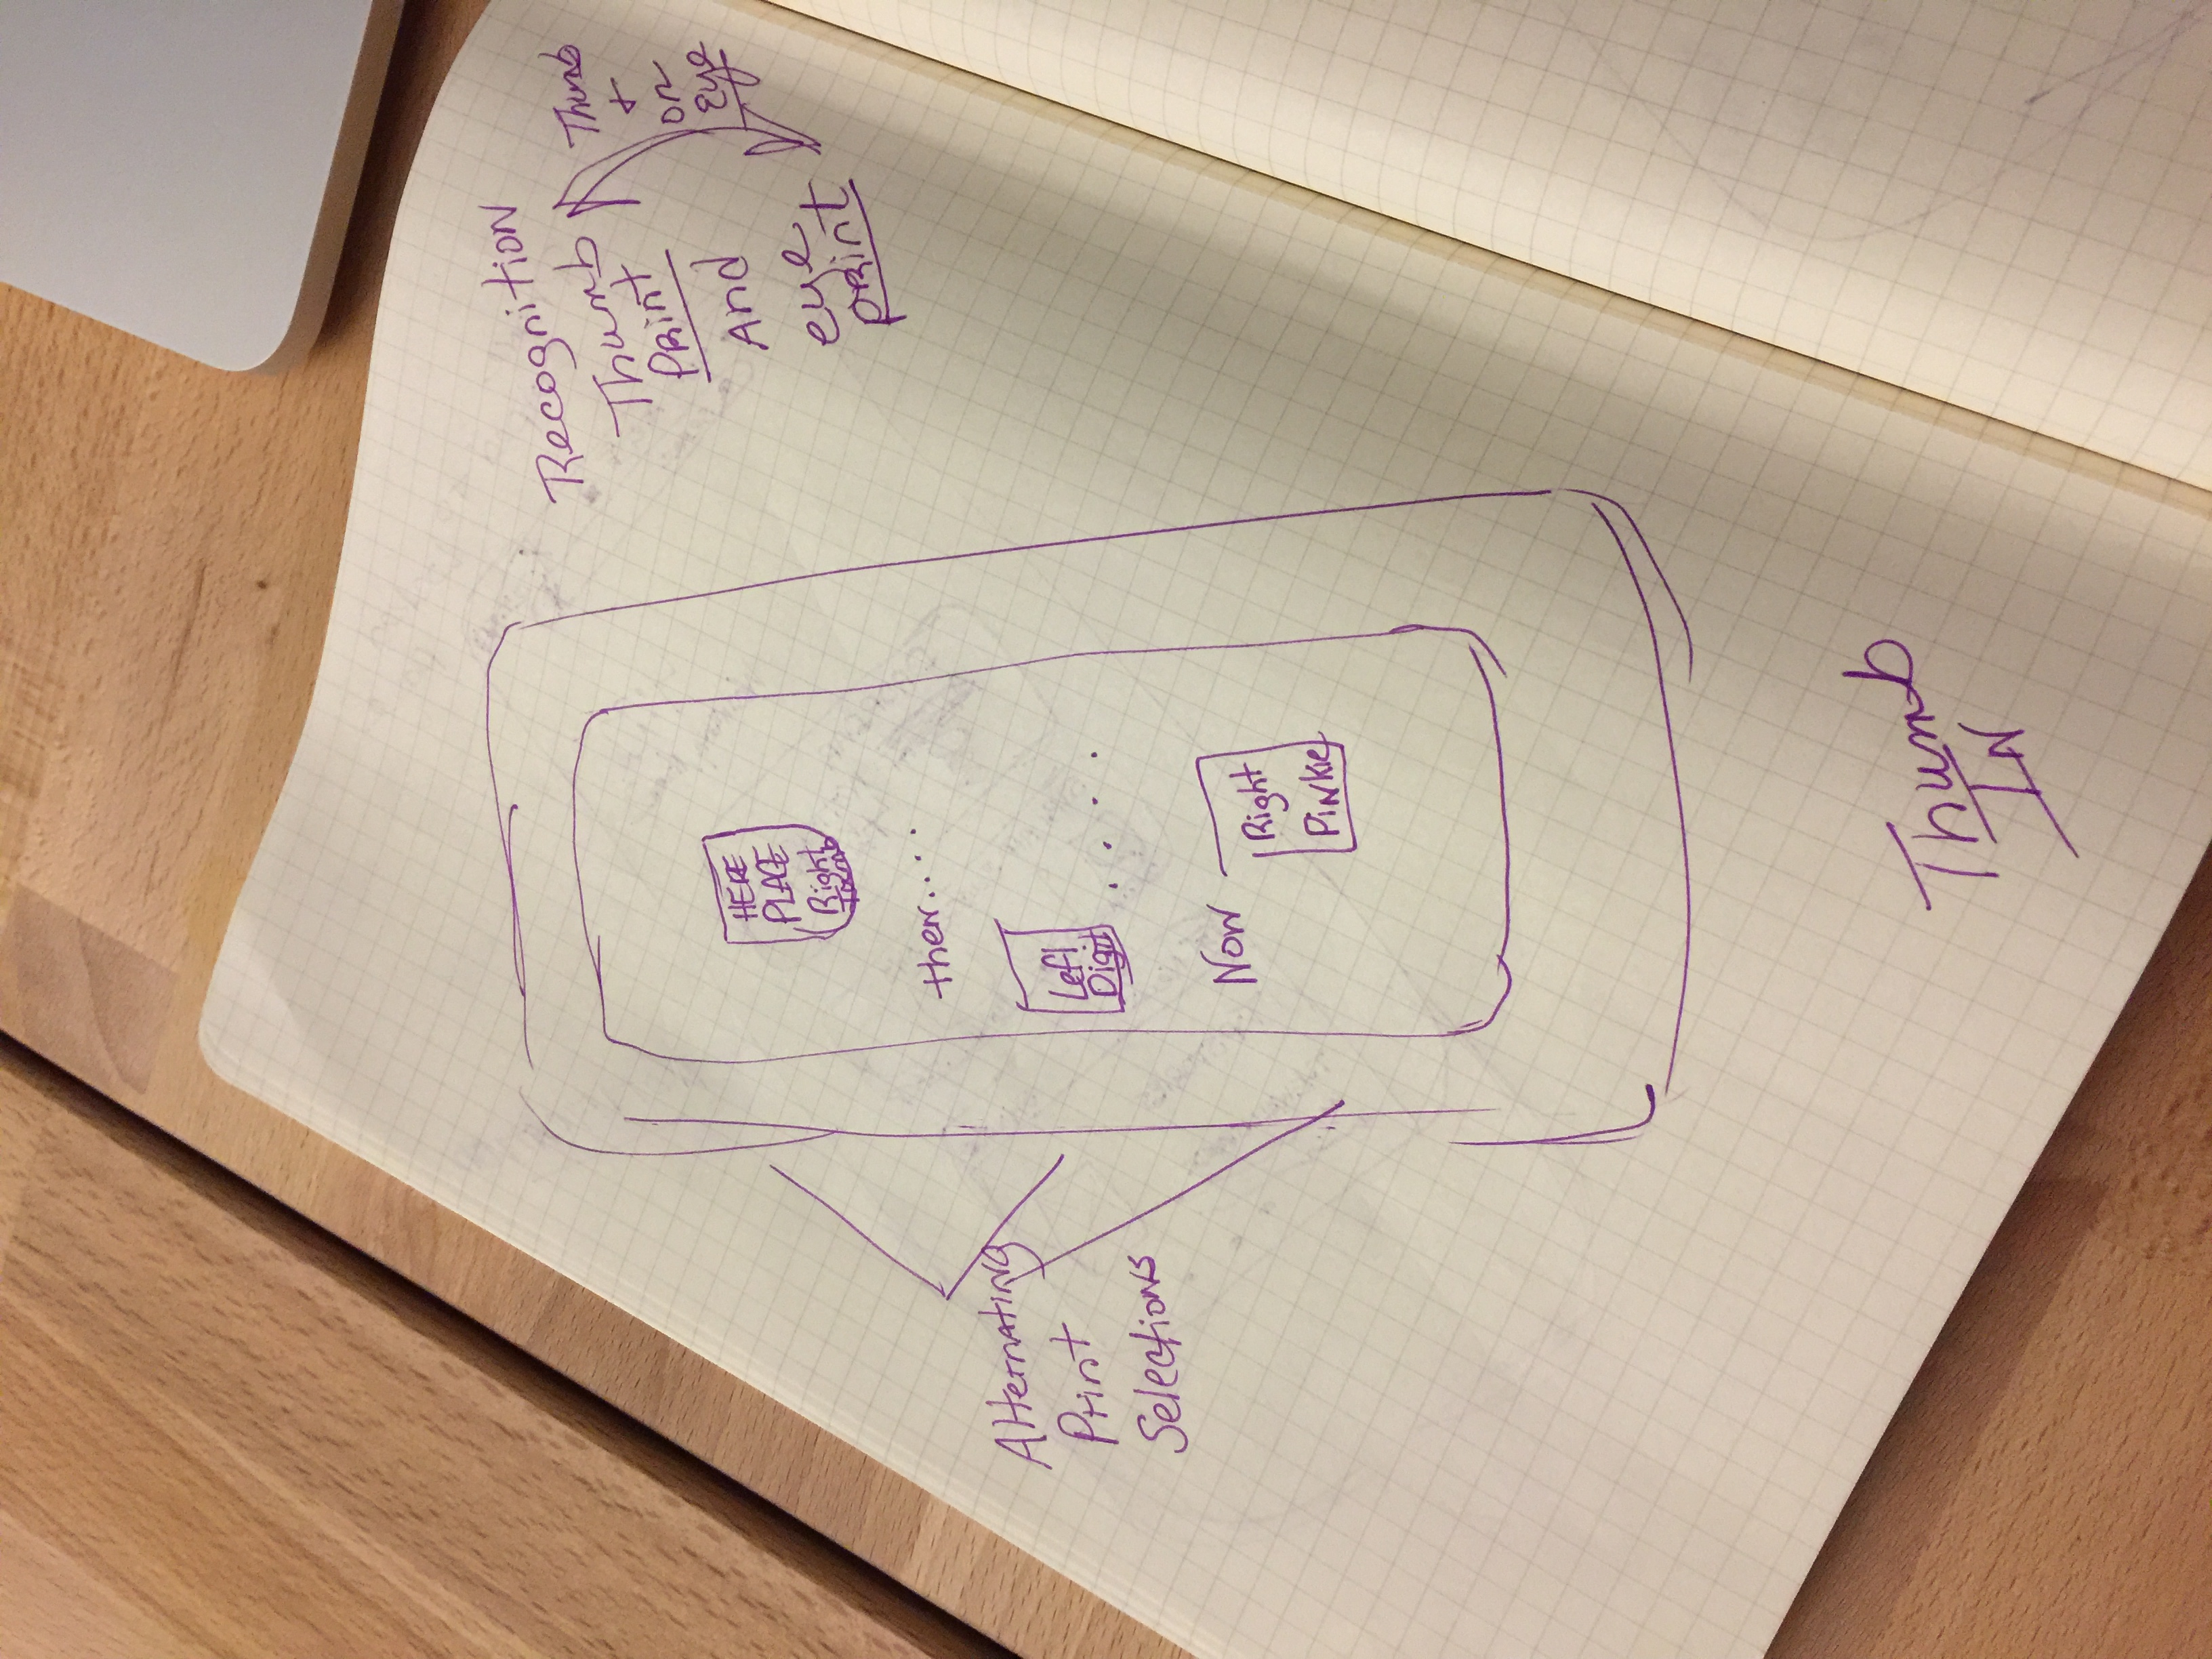 Recognition
Thumb
Print
And
eye
print
Thumb
+
or
Eye
HERE
PLACE
Right
then....
Left
Digit ....
Now
Right
Pinkie
Alternating
Print
Selections
Thumb
IN